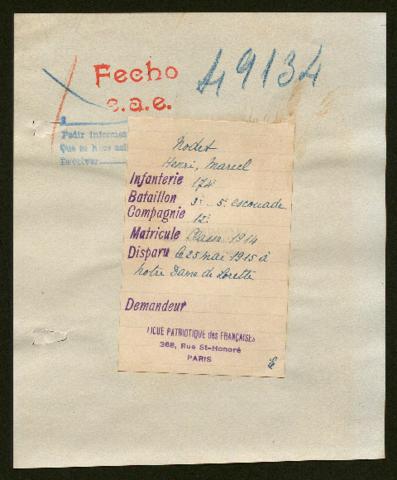 Fecho
c.a.e.
49134
Pedir informes
Que se hizo
Devolver
Nodet
Henri, Marcel
Infanterie 174
Bataillon 3e 5e escouade
Compagnie 12e
Matricule Classe 1914
Disparu le 25 mai 1915 à
Notre Dame de Lorette
Demandeur
LIGUE PATRIOTIQUE des FRANÇAISES
368, Rue St-Honoré
PARIS